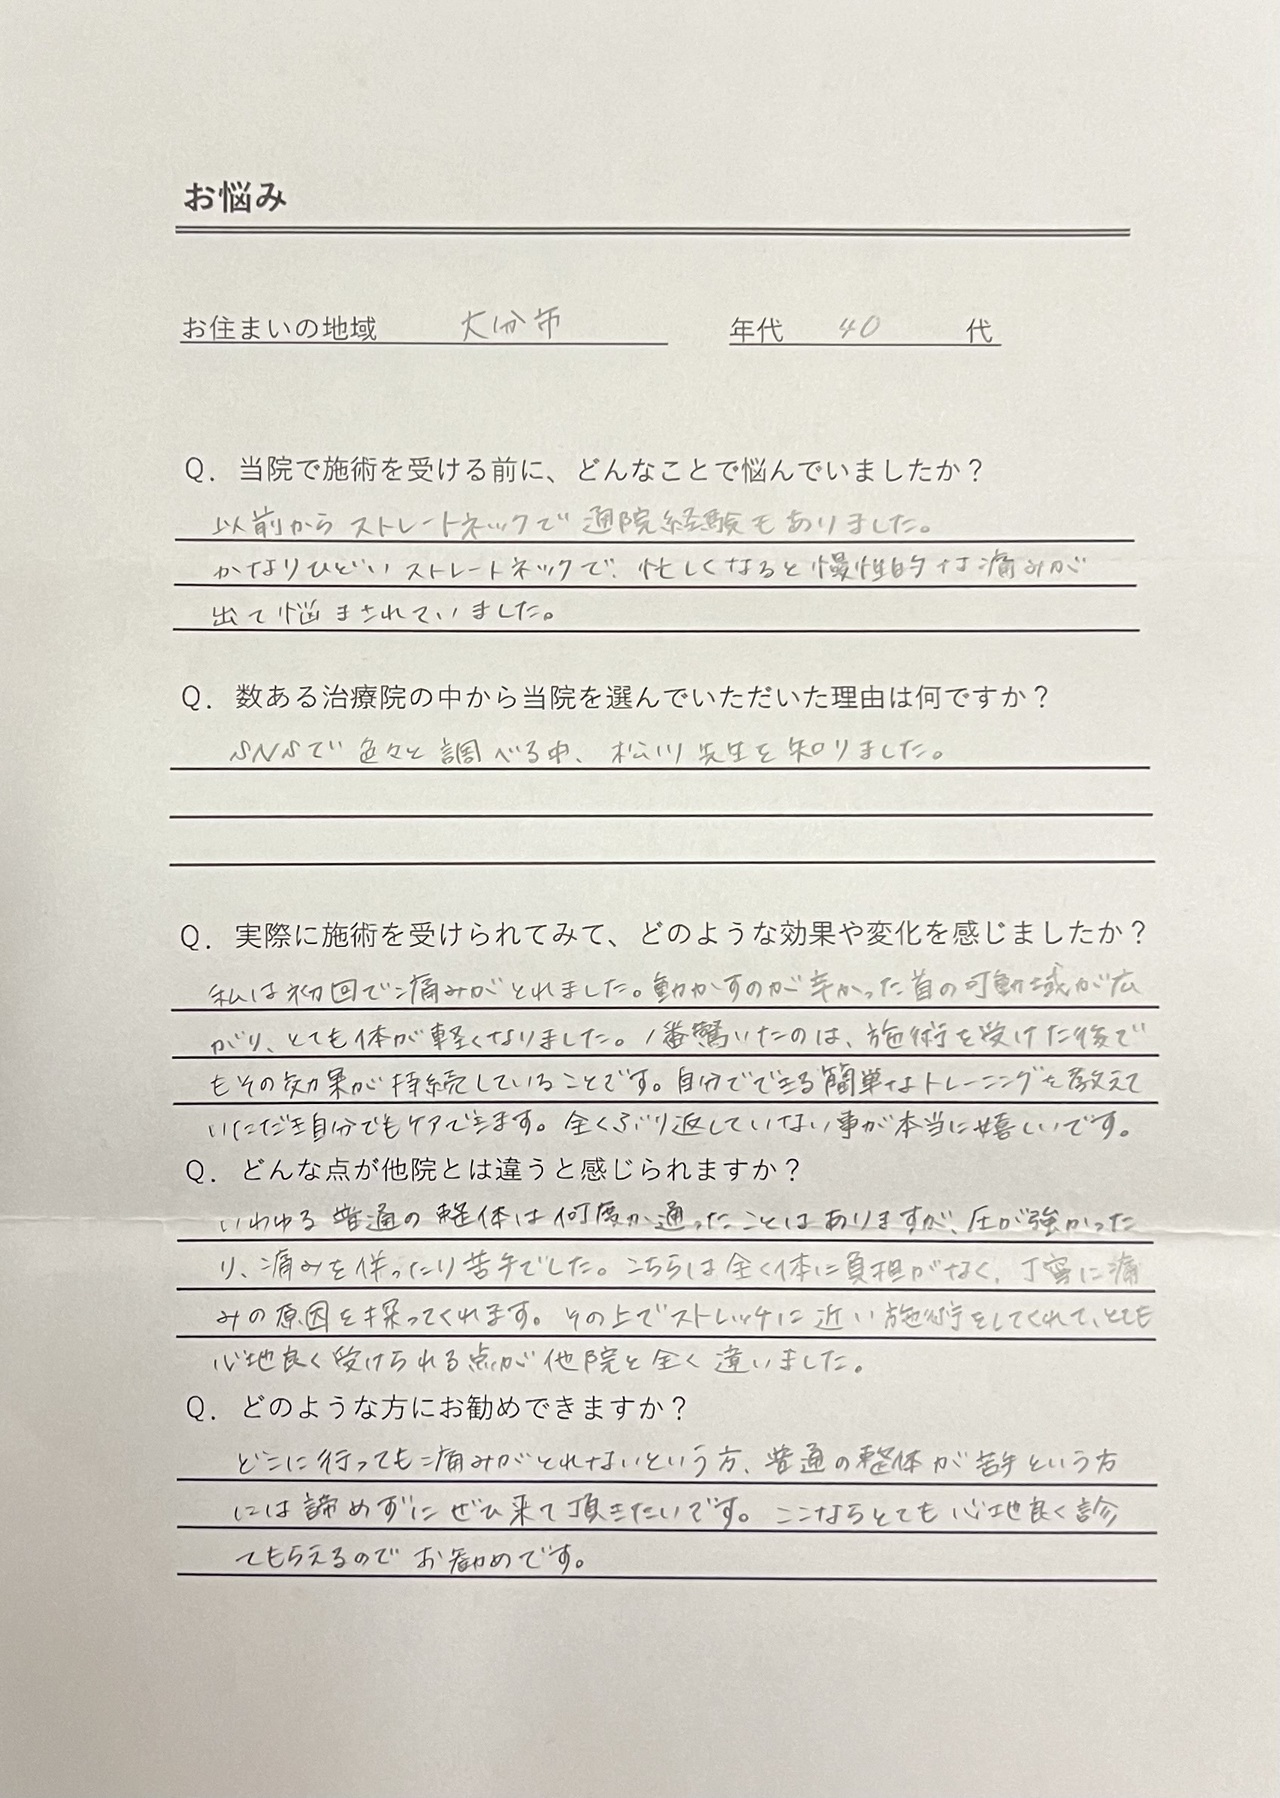 お悩み
お住まいの地域 大分市 年代 40 代
Q．当院で施術を受ける前に、どんなことで悩んでいましたか？
以前からストレートネックで通院経験もありました。
かなりひどいストレートネックで、忙しくなると慢性的な痛みが
出て悩まされていました。
Q．数ある治療院の中から当院を選んでいただいた理由は何ですか？
SNSで色々と調べる中、松川先生を知りました。
Q．実際に施術を受けられてみて、どのような効果や変化を感じましたか？
私は初回で痛みがとれました。動かすのが辛かった首の可動域が広
がり、とても体が軽くなりました。1番驚いたのは、施術を受けた後で
もその効果が持続していることです。自分でできる簡単なトレーニングを教えて
いただき自分でもケアできます。全くぶり返していない事が本当に嬉しいです。
Q．どんな点が他院とは違うと感じられますか？
いわゆる普通の整体は何度か通ったことはありますが、圧が強かった
り、痛みを伴ったり苦手でした。こちらは全く体に負担がなく、丁寧に痛
みの原因を探ってくれます。その上でストレッチに近い施術をしてくれて、とても
心地良く受けられる点が他院と全く違いました。
Q．どのような方にお勧めできますか？
どこに行っても痛みがとれないという方、普通の整体が苦手という方
には諦めずにぜひ来て頂きたいです。ここならとても心地良く診
てもらえるのでお勧めです。